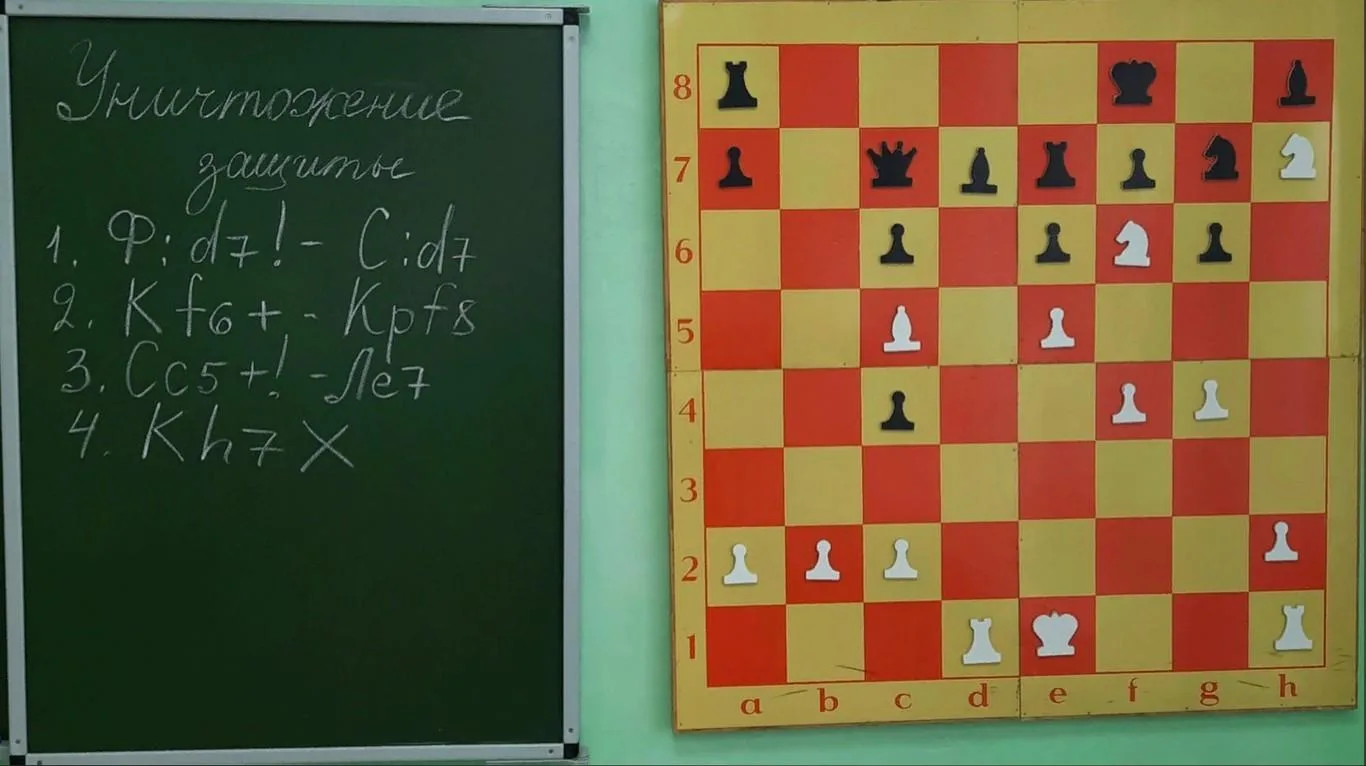 Уничтожение
защиты
1. Ф:d7! - С:d7
2. Кf6+ - Крf8
3. Сc5+! - Лe7
4. Кh7X
8
7
6
5
4
3
2
1
a b c d e f g h